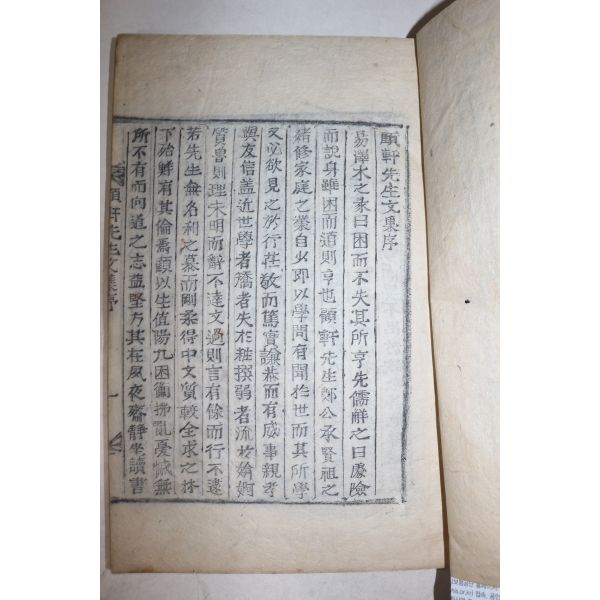 顧軒先生文集序
易澤水之彖曰困而不失其所亨先儒解之曰處險
而說身雖困而道則亨也顧軒先生鄭公承賢祖之
緒修家庭之業自少即以學問有聞於世而其所學
又必欲見之於行莊敬而篤實謙恭而有成事親孝
與友信盖近世學者矯者失於粧撰弱者流於婾婀
質魯則理未明而辭不達文過則言有餘而行不逮
若先生無名利之慕而剛柔得中文質較全求之林
下殆鮮有其倫焉顧以生值陽九困衡拂亂憂慽無
所不有而向道之志益堅方其在夙夜齋靜坐讀書
顧軒先生文集序
一